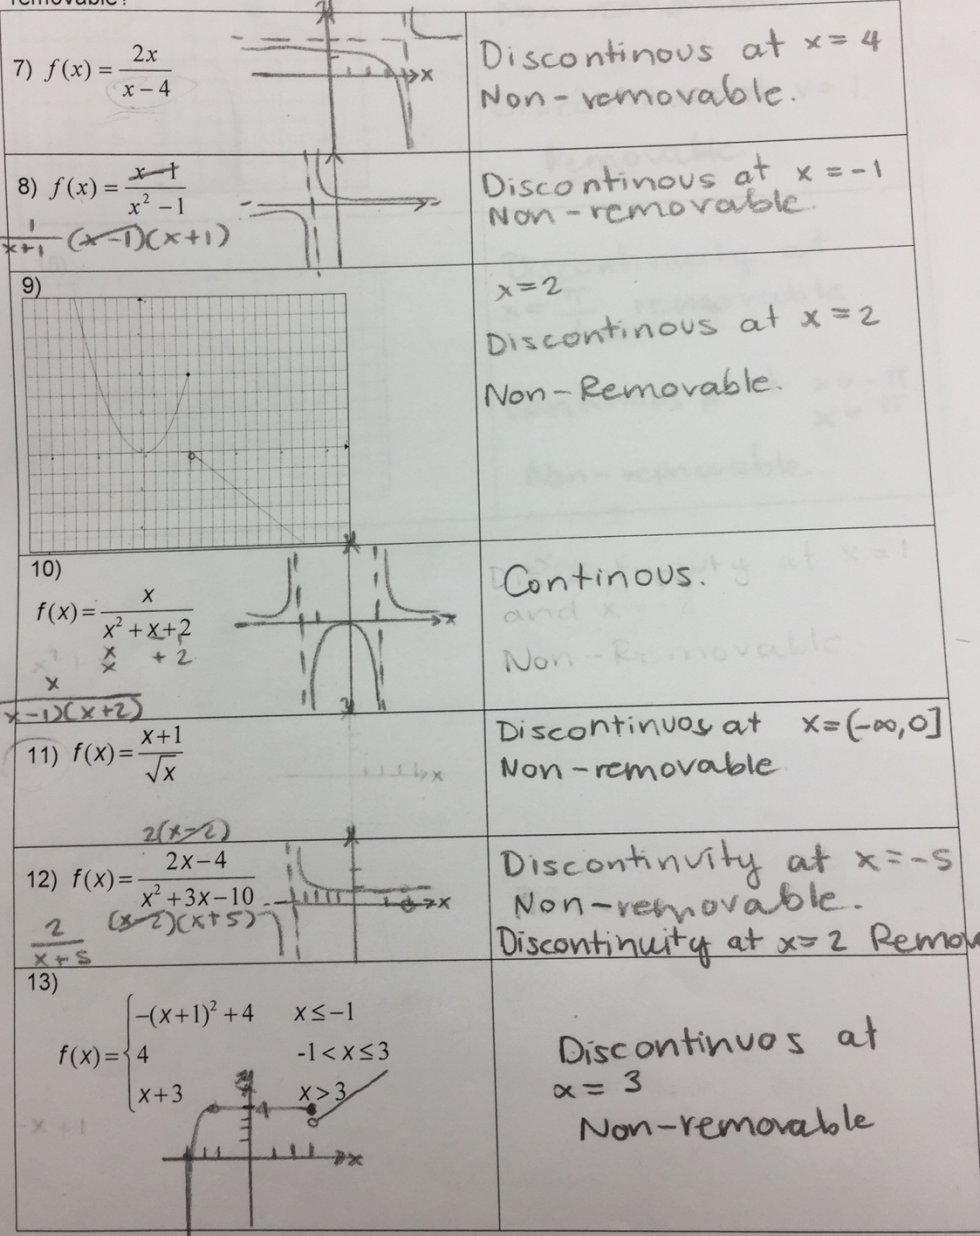 removable?
7) f(x) = 2x / (x − 4)
Discontinous at x = 4
Non-removable.
8) f(x) = (x − 1) / (x² − 1)
1 / (x+1) (x−1)(x+1)
Discontinous at x = -1
Non-removable.
9)
x=2
Discontinous at x = 2
Non-Removable.
10)
f(x) = x / (x² + x + 2)
x
x + 2
x / (x-1)(x+2)
x
Continous.
11) f(x) = (x+1) / √x
x
Discontinuos at x=(-∞,0]
Non-removable
2(x-2)
12) f(x) = (2x−4) / (x² + 3x − 10)
(x-2)(x+5)
2 / (x+5)
x
Discontinuity at x=-5
Non-removable.
Discontinuity at x=2 Remov
13)
f(x) = { −(x+1)² + 4 x ≤ −1
4 -1 < x ≤ 3
x+3 x > 3
4
x
Discontinuos at
x = 3
Non-removable